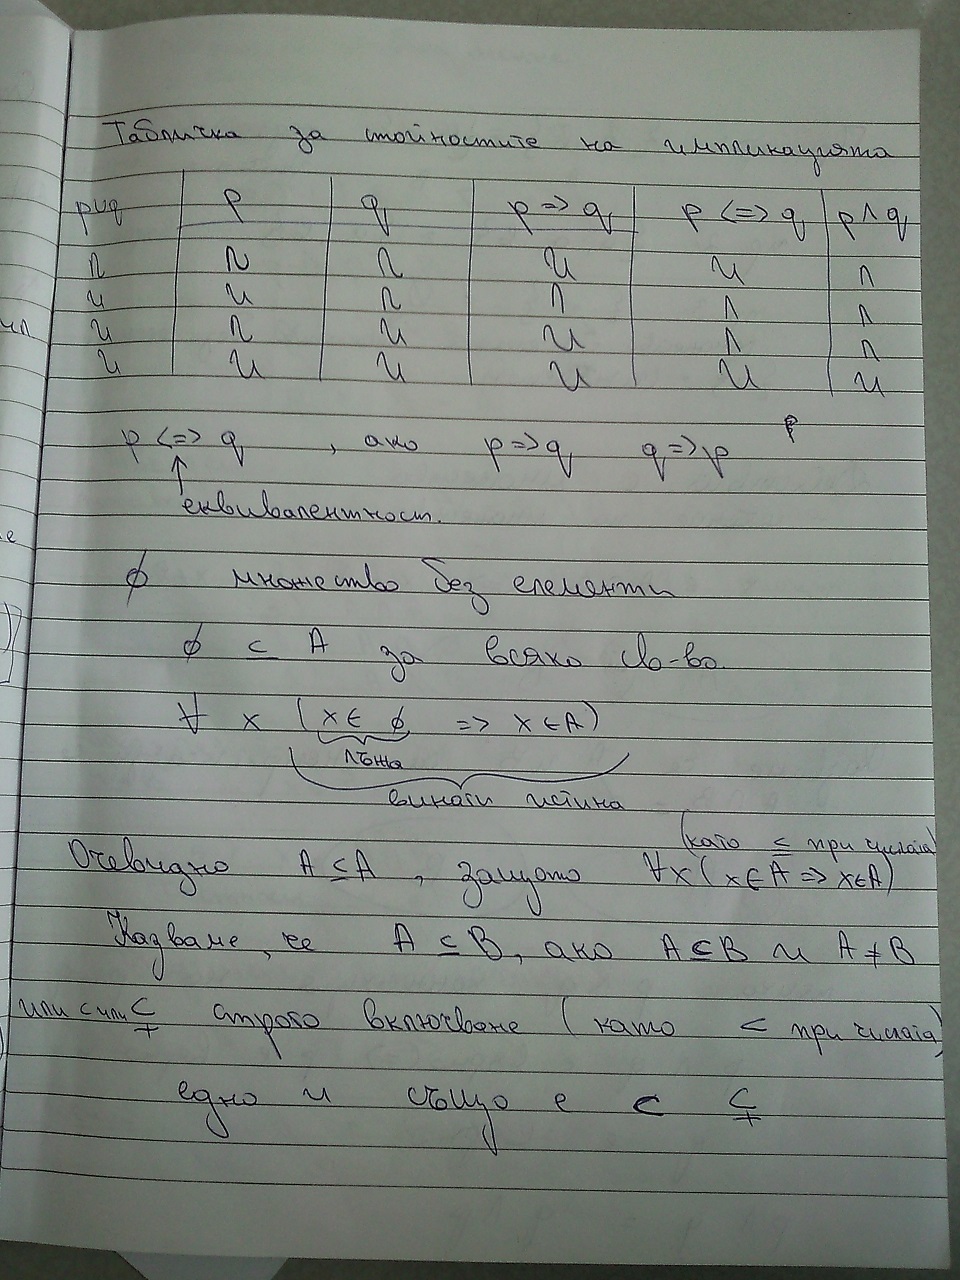 Табличка за стойностите на импликацията
p∪q p q p => q p <=> q p ∧ q
л л л и и л
и и л л л л
и л и и л л
и и и и и и
p <=> q , ако p => q q => p
еквивалентност.
∅ множество без елементи
∅ ⊆ A за всяко
∀ x (x ∈ ∅ => x ∈ A)
лъжа
винаги истина
(като ≤ при числата)
Очевидно A ⊆ A , защото ∀x (x ∈ A => x ∈ A)
Казваме, че A ⊆ B, ако A ⊆ B и A ≠ B
или ⊂ или ⊊ строго включване (като < при числата)
едно и също е ⊂ ⊊